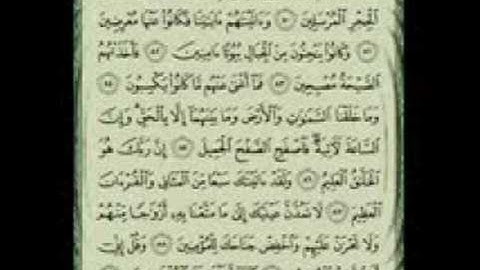 ٱلْحِجْرِ ٱلْمُرْسَلِينَ ٨٠ وَءَاتَيْنَٰهُمْ ءَايَٰتِنَا فَكَانُوا۟ عَنْهَا مُعْرِضِينَ
٨١ وَكَانُوا۟ يَنْحِتُونَ مِنَ ٱلْجِبَالِ بُيُوتًا ءَامِنِينَ ٨٢ فَأَخَذَتْهُمُ
ٱلصَّيْحَةُ مُصْبِحِينَ ٨٣ فَمَآ أَغْنَىٰ عَنْهُم مَّا كَانُوا۟ يَكْسِبُونَ ٨٤
وَمَا خَلَقْنَا ٱلسَّمَٰوَٰتِ وَٱلْأَرْضَ وَمَا بَيْنَهُمَآ إِلَّا بِٱلْحَقِّ وَإِنَّ
ٱلسَّاعَةَ لَءَاتِيَةٌ فَٱصْفَحِ ٱلصَّفْحَ ٱلْجَمِيلَ ٨٥ إِنَّ رَبَّكَ هُوَ
ٱلْخَلَّٰقُ ٱلْعَلِيمُ ٨٦ وَلَقَدْ ءَاتَيْنَٰكَ سَبْعًا مِّنَ ٱلْمَثَانِى وَٱلْقُرْءَانَ
ٱلْعَظِيمَ ٨٧ لَا تَمُدَّنَّ عَيْنَيْكَ إِلَىٰ مَا مَتَّعْنَا بِهِۦٓ أَزْوَٰجًا مِّنْهُمْ
وَلَا تَحْزَنْ عَلَيْهِمْ وَٱخْفِضْ جَنَاحَكَ لِلْمُؤْمِنِينَ ٨٨ وَقُلْ إِنِّىٓ